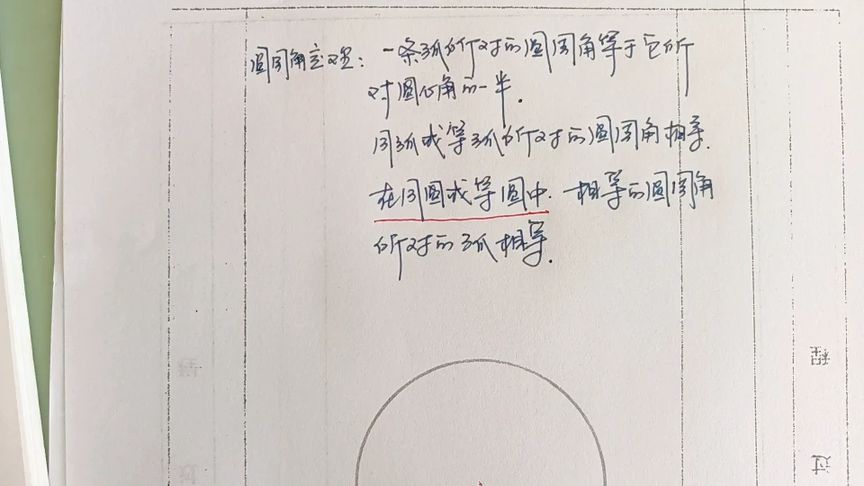 圆周角定理：一条弧所对的圆周角等于它所
对圆心角的一半.
同弧或等弧所对的圆周角相等.
在同圆或等圆中. 相等的圆周角
所对的弧相等.
程
过